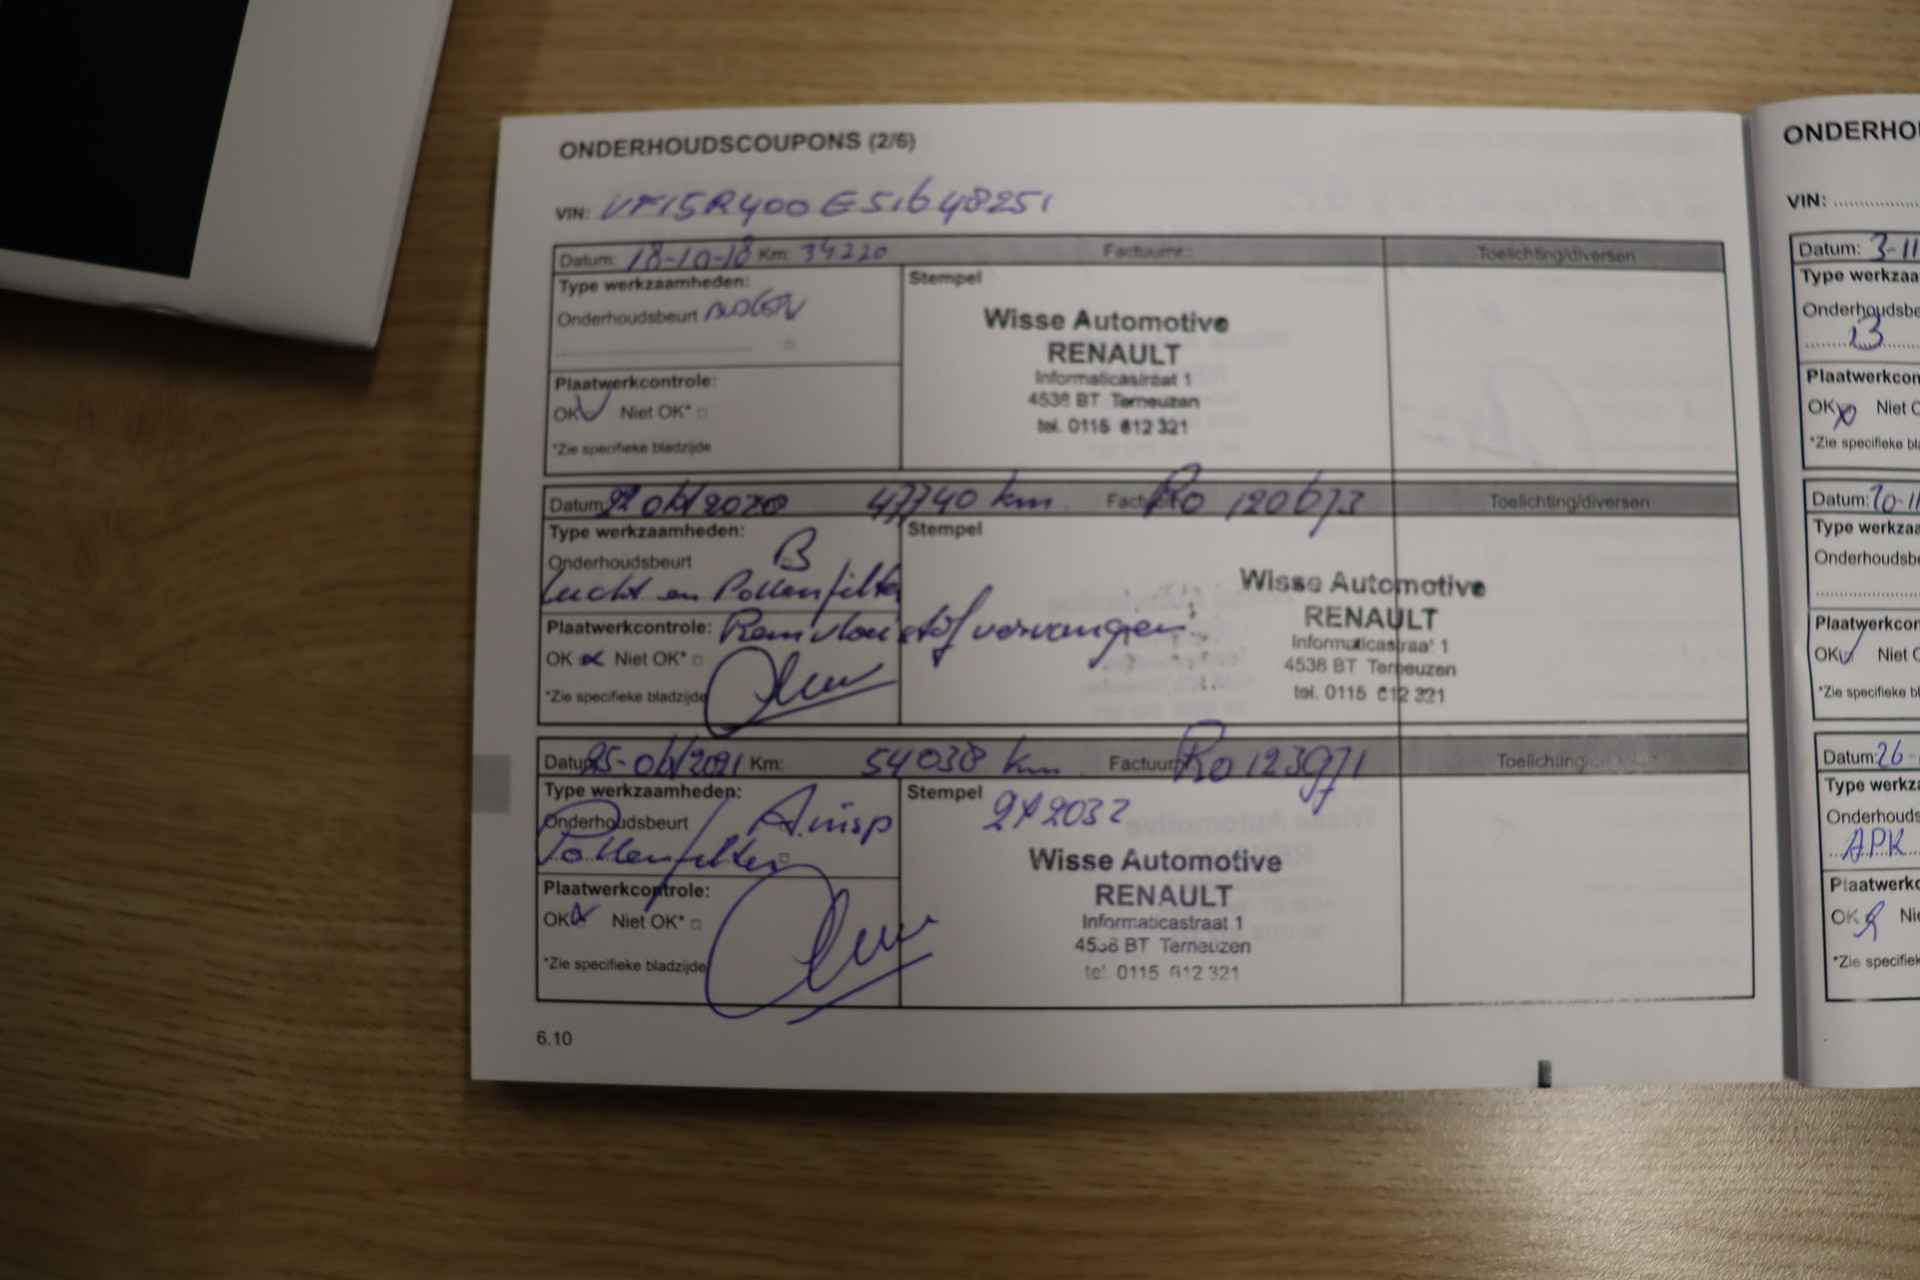 ONDERHOUDSCOUPONS (2/6)
VIN: VF15R400E51648251
Datum: 18-10-18 Km: 34220 Factuurnr.: Toelichting/diversen
Type werkzaamheden: Stempel
Onderhoudsbeurt
Wisse Automotive
RENAULT
Informaticastraat 1
4538 BT Terneuzen
tel. 0115 612 321
Plaatwerkcontrole:
OK Niet OK*
*Zie specifieke bladzijde
Datum 47740 km Ro 120673 Toelichting/diversen
Type werkzaamheden: Stempel
Onderhoudsbeurt B
Lucht en Pollenfilter
Plaatwerkcontrole: Remvloeistof vervangen
OK Niet OK*
*Zie specifieke bladzijde
Wisse Automotive
RENAULT
Informaticastraat 1
4538 BT Terneuzen
tel. 0115 612 321
25-okt/2021 Km: 54038 km Factuur Ro 123971 Toelichting
Type werkzaamheden: Stempel
Onderhoudsbeurt A.insp
Pollenfilter
Plaatwerkcontrole:
OK Niet OK*
*Zie specifieke bladzijde
Wisse Automotive
RENAULT
Informaticastraat 1
4538 BT Terneuzen
tel. 0115 612 321
6.10
ONDERHOU
VIN:
Datum: 3-11
Type werkzaa
Onderhoudsbe
Plaatwerkcon
OK Niet O
*Zie specifieke bla
Datum:
Type werkzaa
Onderhoudsbe
Plaatwerkcon
OK Niet O
*Zie specifieke bl
Datum: 26-
Type werkza
Onderhouds
APK
Plaatwerkc
OK Nie
*Zie specifiek